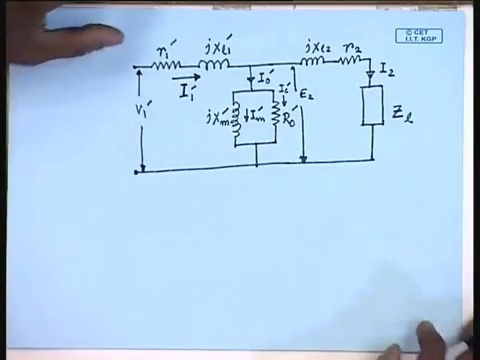 © CET
I.I.T. KGP
r₁′ jxl₁′ jxl₂ r₂
I₁′ I₀′ I₂
V₁′ jx′m I′m Ii′ R₀′ E₂ Zl